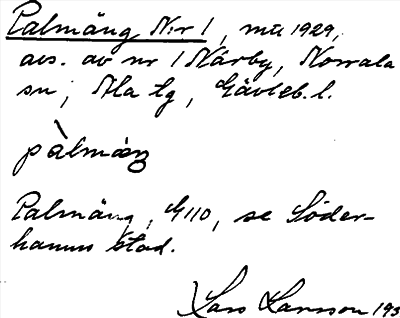 Palmäng Nr 1, mtl 1929,
avs. av nr 1 Närby, Norrala
sn; Ala tg, Gävleb. l.
pàlmäŋ
Palmäng, G110, se Söder-
hamns stad.
Lars Larsson 193